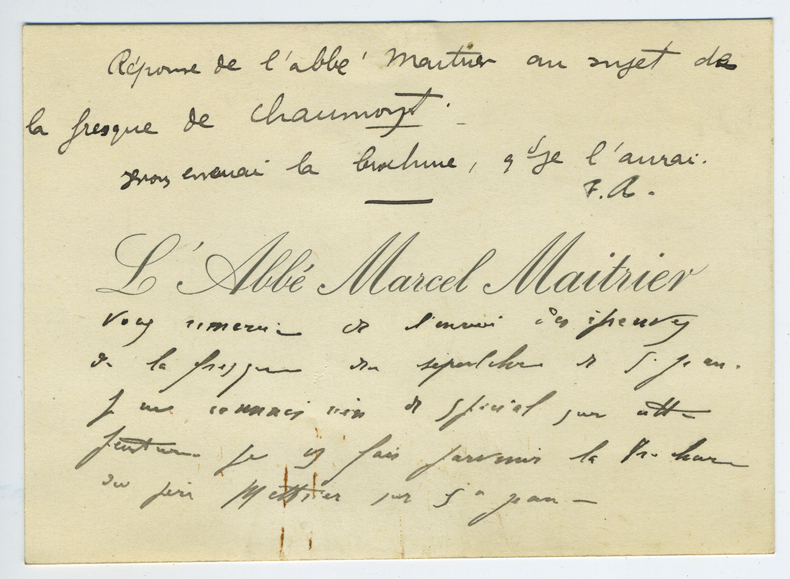 Réponse de l'abbé Maitrier au sujet de
la fresque de Chaumont.
Je vous enverrai la brochure, qd je l'aurai.
F. R.
L'Abbé Marcel Maitrier
vous remercie de l'envoi des épreuves
de la fresque du sépulchre de St Jean.
Je ne connais rien de spécial sur cette
peinture. Je vs fais parvenir la brochure
du père Mettrier sur St Jean